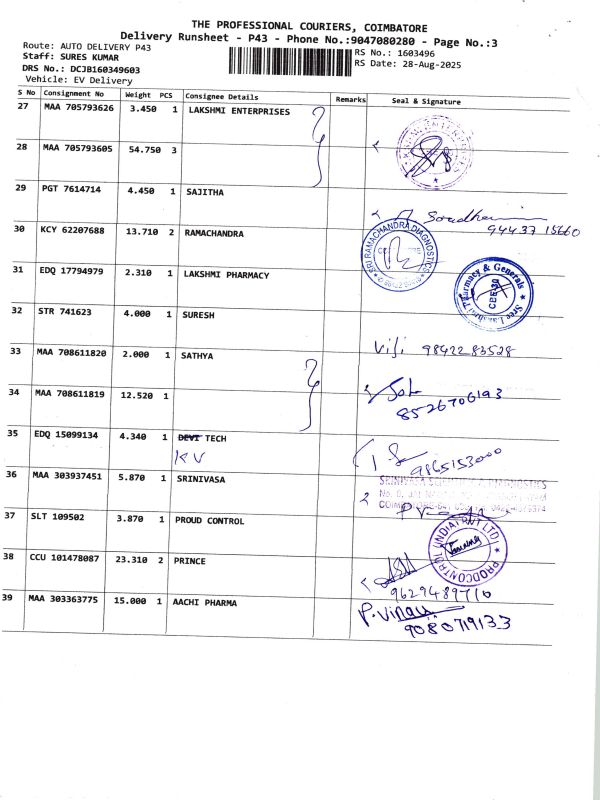 THE PROFESSIONAL COURIERS, COIMBATORE
Delivery Runsheet - P43 - Phone No.:9047080280 - Page No.:3
Route: AUTO DELIVERY P43
Staff: SURES KUMAR
DRS No.: DCJB160349603
Vehicle: EV Delivery
RS No.: 1603496
RS Date: 28-Aug-2025
S No Consignment No Weight PCS Consignee Details Remarks Seal & Signature
27 MAA 705793626 3.450 1 LAKSHMI ENTERPRISES
28 MAA 705793605 54.750 3
29 PGT 7614714 4.450 1 SAJITHA
94437 15660
30 KCY 62207688 13.710 2 RAMACHANDRA
SRI RAMACHANDRA DIAGNOSTICS
31 EDQ 17794979 2.310 1 LAKSHMI PHARMACY
Sree Lakshmi Pharmacy & Generals
CBE-30
32 STR 741623 4.000 1 SURESH
Viji 98422 83528
33 MAA 708611820 2.000 1 SATHYA
34 MAA 708611819 12.520 1
8526706193
35 EDQ 15099134 4.340 1 DEVI TECH
KV
9865153000
36 MAA 303937451 5.870 1 SRINIVASA
37 SLT 109502 3.870 1 PROUD CONTROL
PRODCONTROL (INDIA) PVT LTD
38 CCU 101478087 23.310 2 PRINCE
9629489710
39 MAA 303363775 15.000 1 AACHI PHARMA
P. Vinay
9080719133